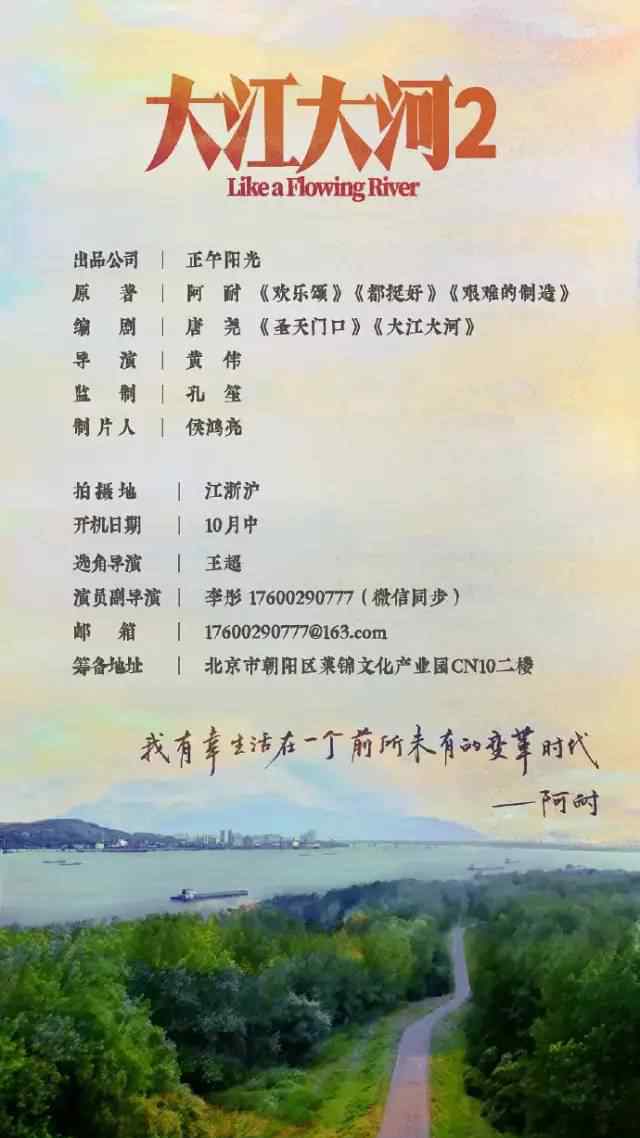 大江大河2
Like a Flowing River
出品公司 | 正午阳光
原 著 | 阿 耐 《欢乐颂》《都挺好》《艰难的制造》
编 剧 | 唐 尧 《圣天门口》《大江大河》
导 演 | 黄 伟
监 制 | 孔 笙
制片人 | 侯鸿亮
拍摄地 | 江浙沪
开机日期 | 10月中
选角导演 | 王超
演员副导演 | 李彤 17600290777（微信同步）
邮 箱 | 17600290777@163.com
筹备地址 | 北京市朝阳区莱锦文化产业园CN10二楼
我有幸生活在一个前所未有的变革时代
—阿耐